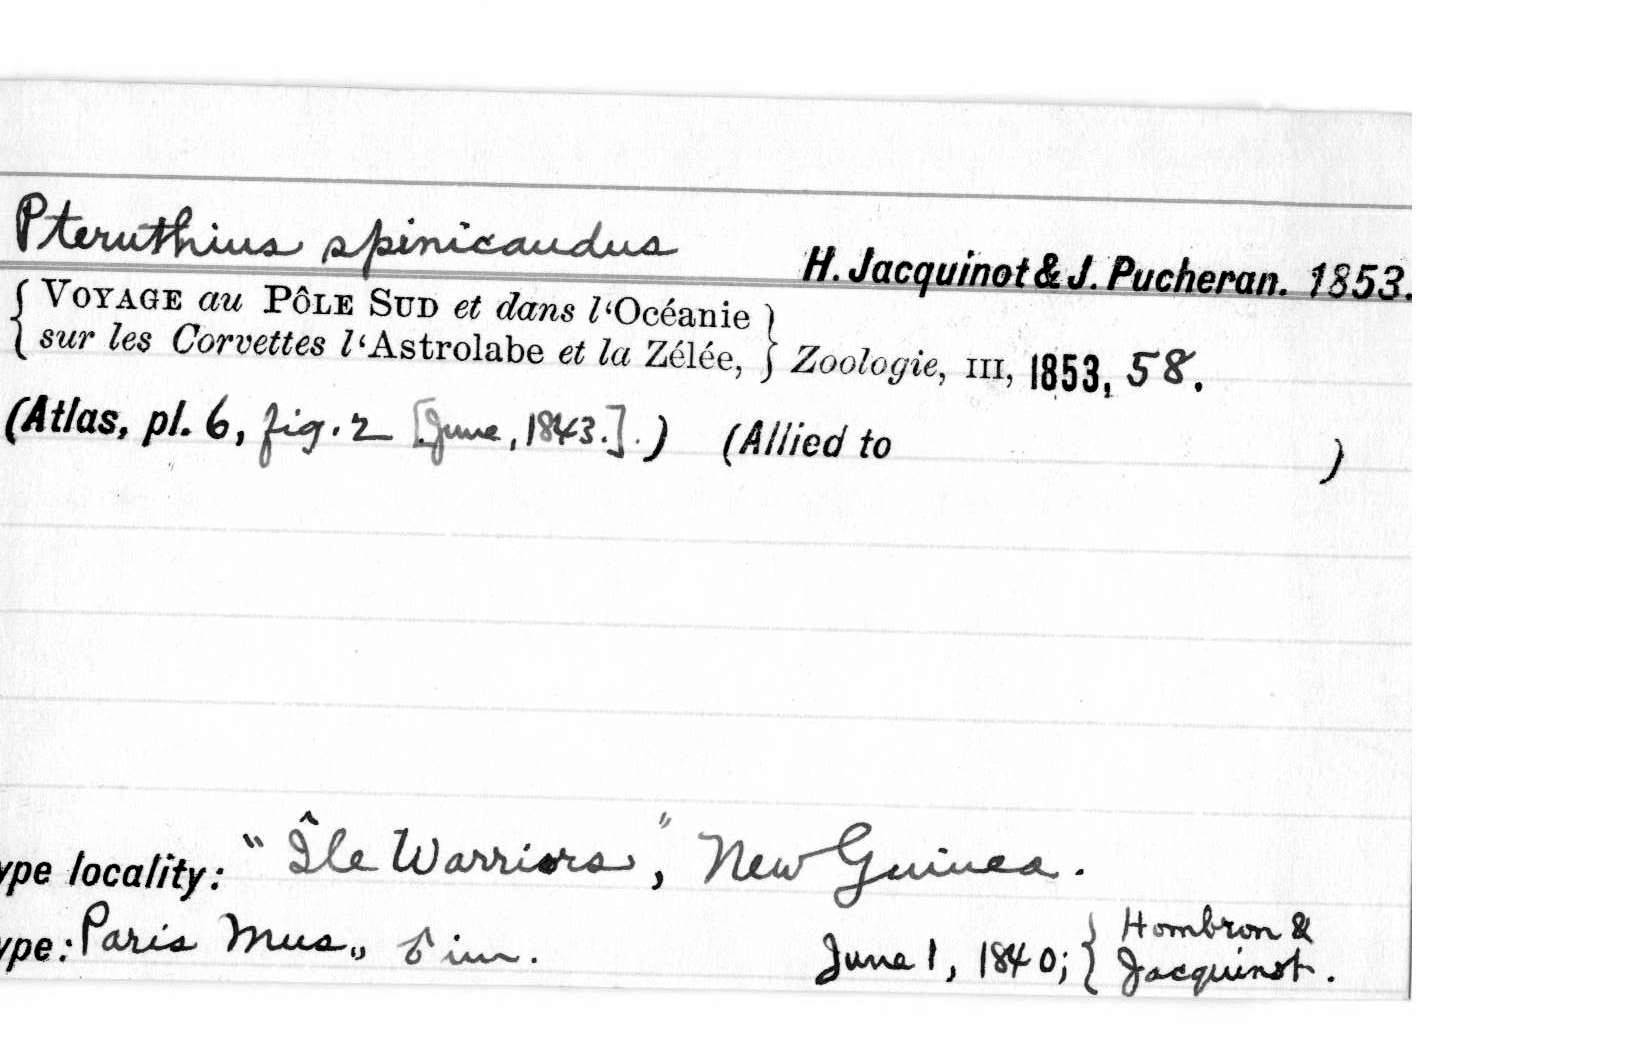 Pteruthius spinicaudus H. Jacquinot & J. Pucheran. 1853.
{ VOYAGE au PÔLE SUD et dans l‘Océanie }
{ sur les Corvettes l‘Astrolabe et la Zélée, } Zoologie, III, 1853, 58.
(Atlas, pl. 6, fig. 2 [June, 1843.].) (Allied to )
ype locality: "Île Warriors", New Guinea.
ype: Paris Mus., im. June 1, 1840; { Hombron &
Jacquinot.